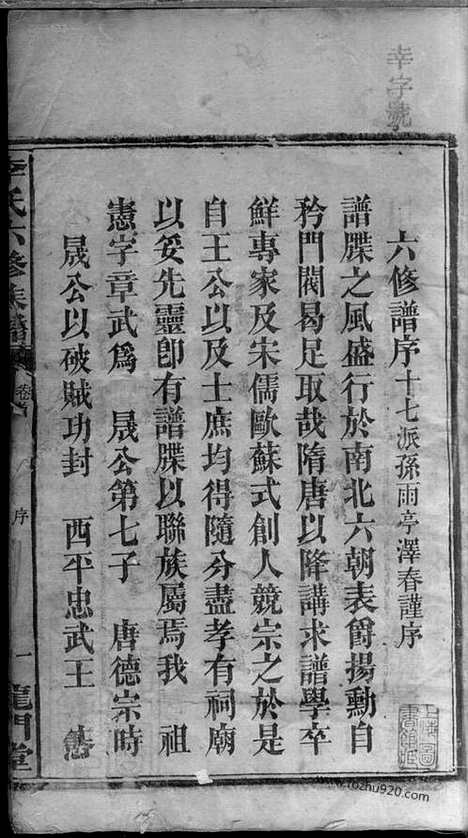 幸字號
六修譜序十七派孫雨亭澤春謹序
譜牒之風盛行於南北六朝表爵揚勳自
矜門閥曷足取哉隋唐以降講求譜學卒
鮮專家及宋儒歐蘇式創人競宗之於是
自王公以及士庶均得隨分盡孝有祠廟
以妥先靈卽有譜牒以聯族屬焉我 祖
憲字章武爲 晟公第七子 唐德宗時
晟公以破賊功封 西平忠武王
李氏六修族譜 卷首 序 一 龍門堂
上海圖書館藏
www.fozhu920.com